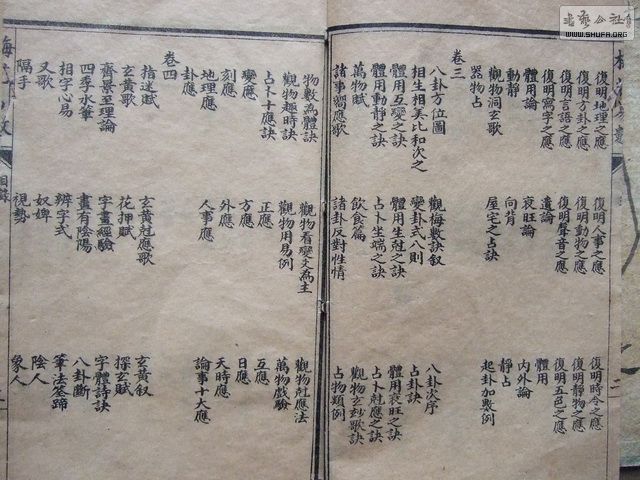 書藝公社
WWW.SHUFA.ORG
復明地理之應 復明人事之應 復明時令之應
復明方卦之應 復明動物之應 復明靜物之應
復明言語之應 復明聲音之應 復明五色之應
復明寫字之應 遺論 體用
動靜 衰旺論 內外論
觀物洞玄歌 向背 靜占
器物占 屋宅之占訣 起卦加數例
卷三
八卦方位圖 觀梅數訣叙 八卦次序
相生相美比和次之 變卦式八則 占卦訣
體用互變之訣 體用生尅之訣 體用衰旺之訣
體用動靜之訣 占卜坐端之訣 占卜尅應之訣
萬物賦 飲食篇 觀物玄妙歌訣
諸事響應歌 諸卦反對性情 占物類例
物數為體訣 觀物看變爻為主 觀物尅應法
觀物趣時訣 觀物用易例 萬物戲驗
占卜十應訣 正應 互應
變應 方應 日應
刻應 外應 天時應
地理應 人事應 論事十大應
卦應
卷四
指迷賦 玄黃尅應歌 玄黃叙
玄黃歌 花押賦 探玄賦
齊景至理論 字畫經驗 字體詩訣
四季水筆 畫有陰陽 八卦斷
相字心易 辨字式 筆法筌蹄
又歌 奴婢 陰人
隔手 視勢 象人
目錄
二